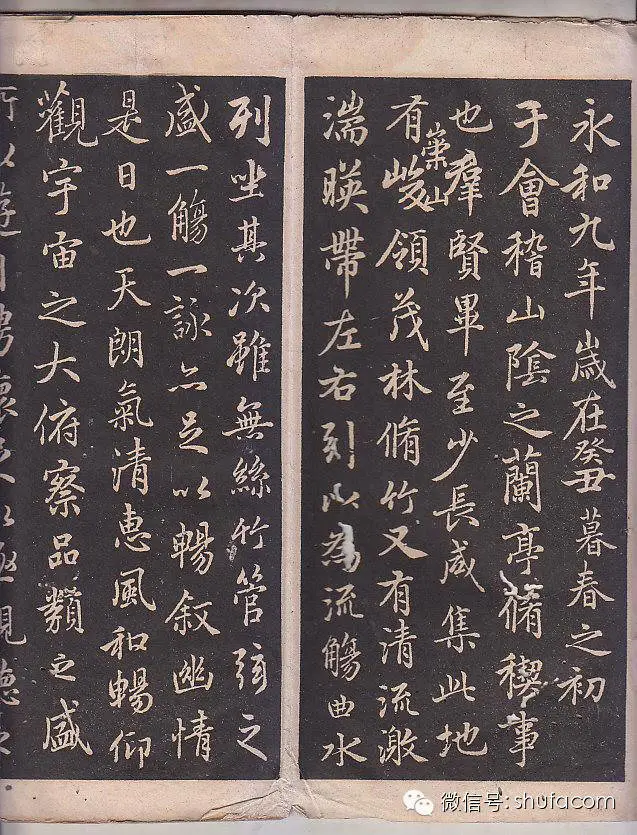 永和九年歲在癸丑暮春之初
于會稽山陰之蘭亭脩稧事
也羣賢畢至少長咸集此地
有崇山峻領茂林脩竹又有清流激
湍暎帶左右引以為流觴曲水
列坐其次雖無絲竹管弦之
盛一觴一詠亦足以暢叙幽情
是日也天朗氣清惠風和暢仰
觀宇宙之大俯察品類之盛
微信号: shufacom